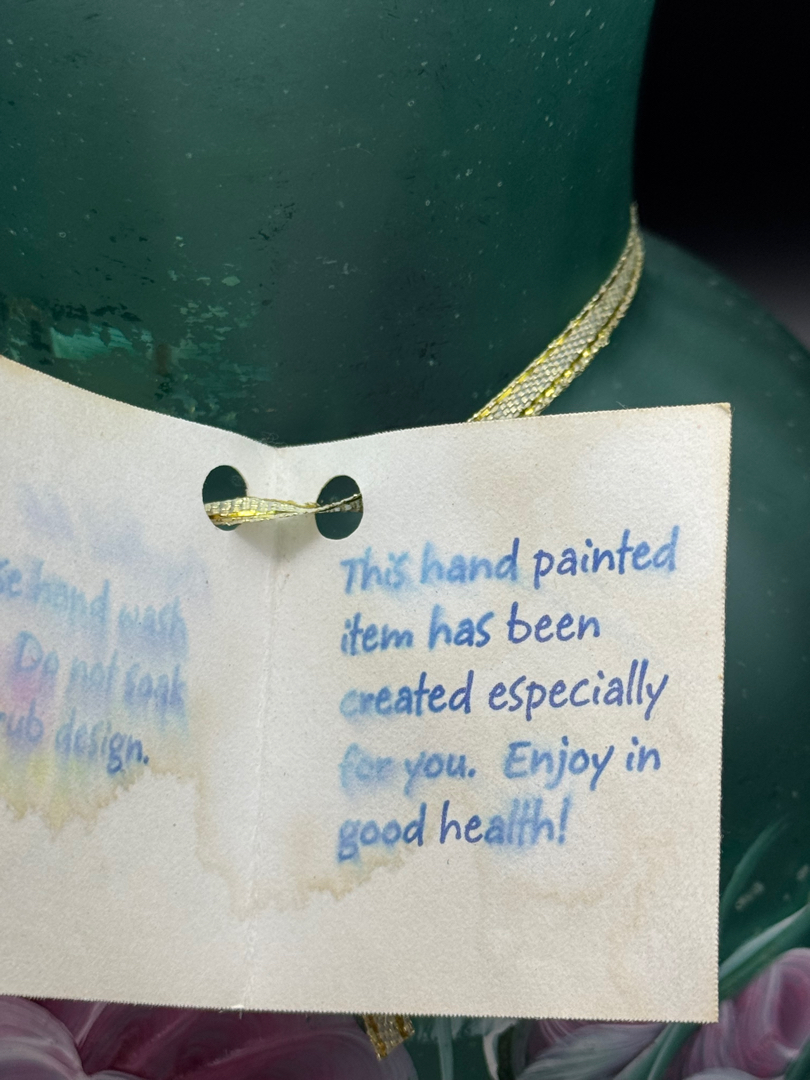 hand wash
Do not soak
rub design.
This hand painted
item has been
created especially
for you. Enjoy in
good health!